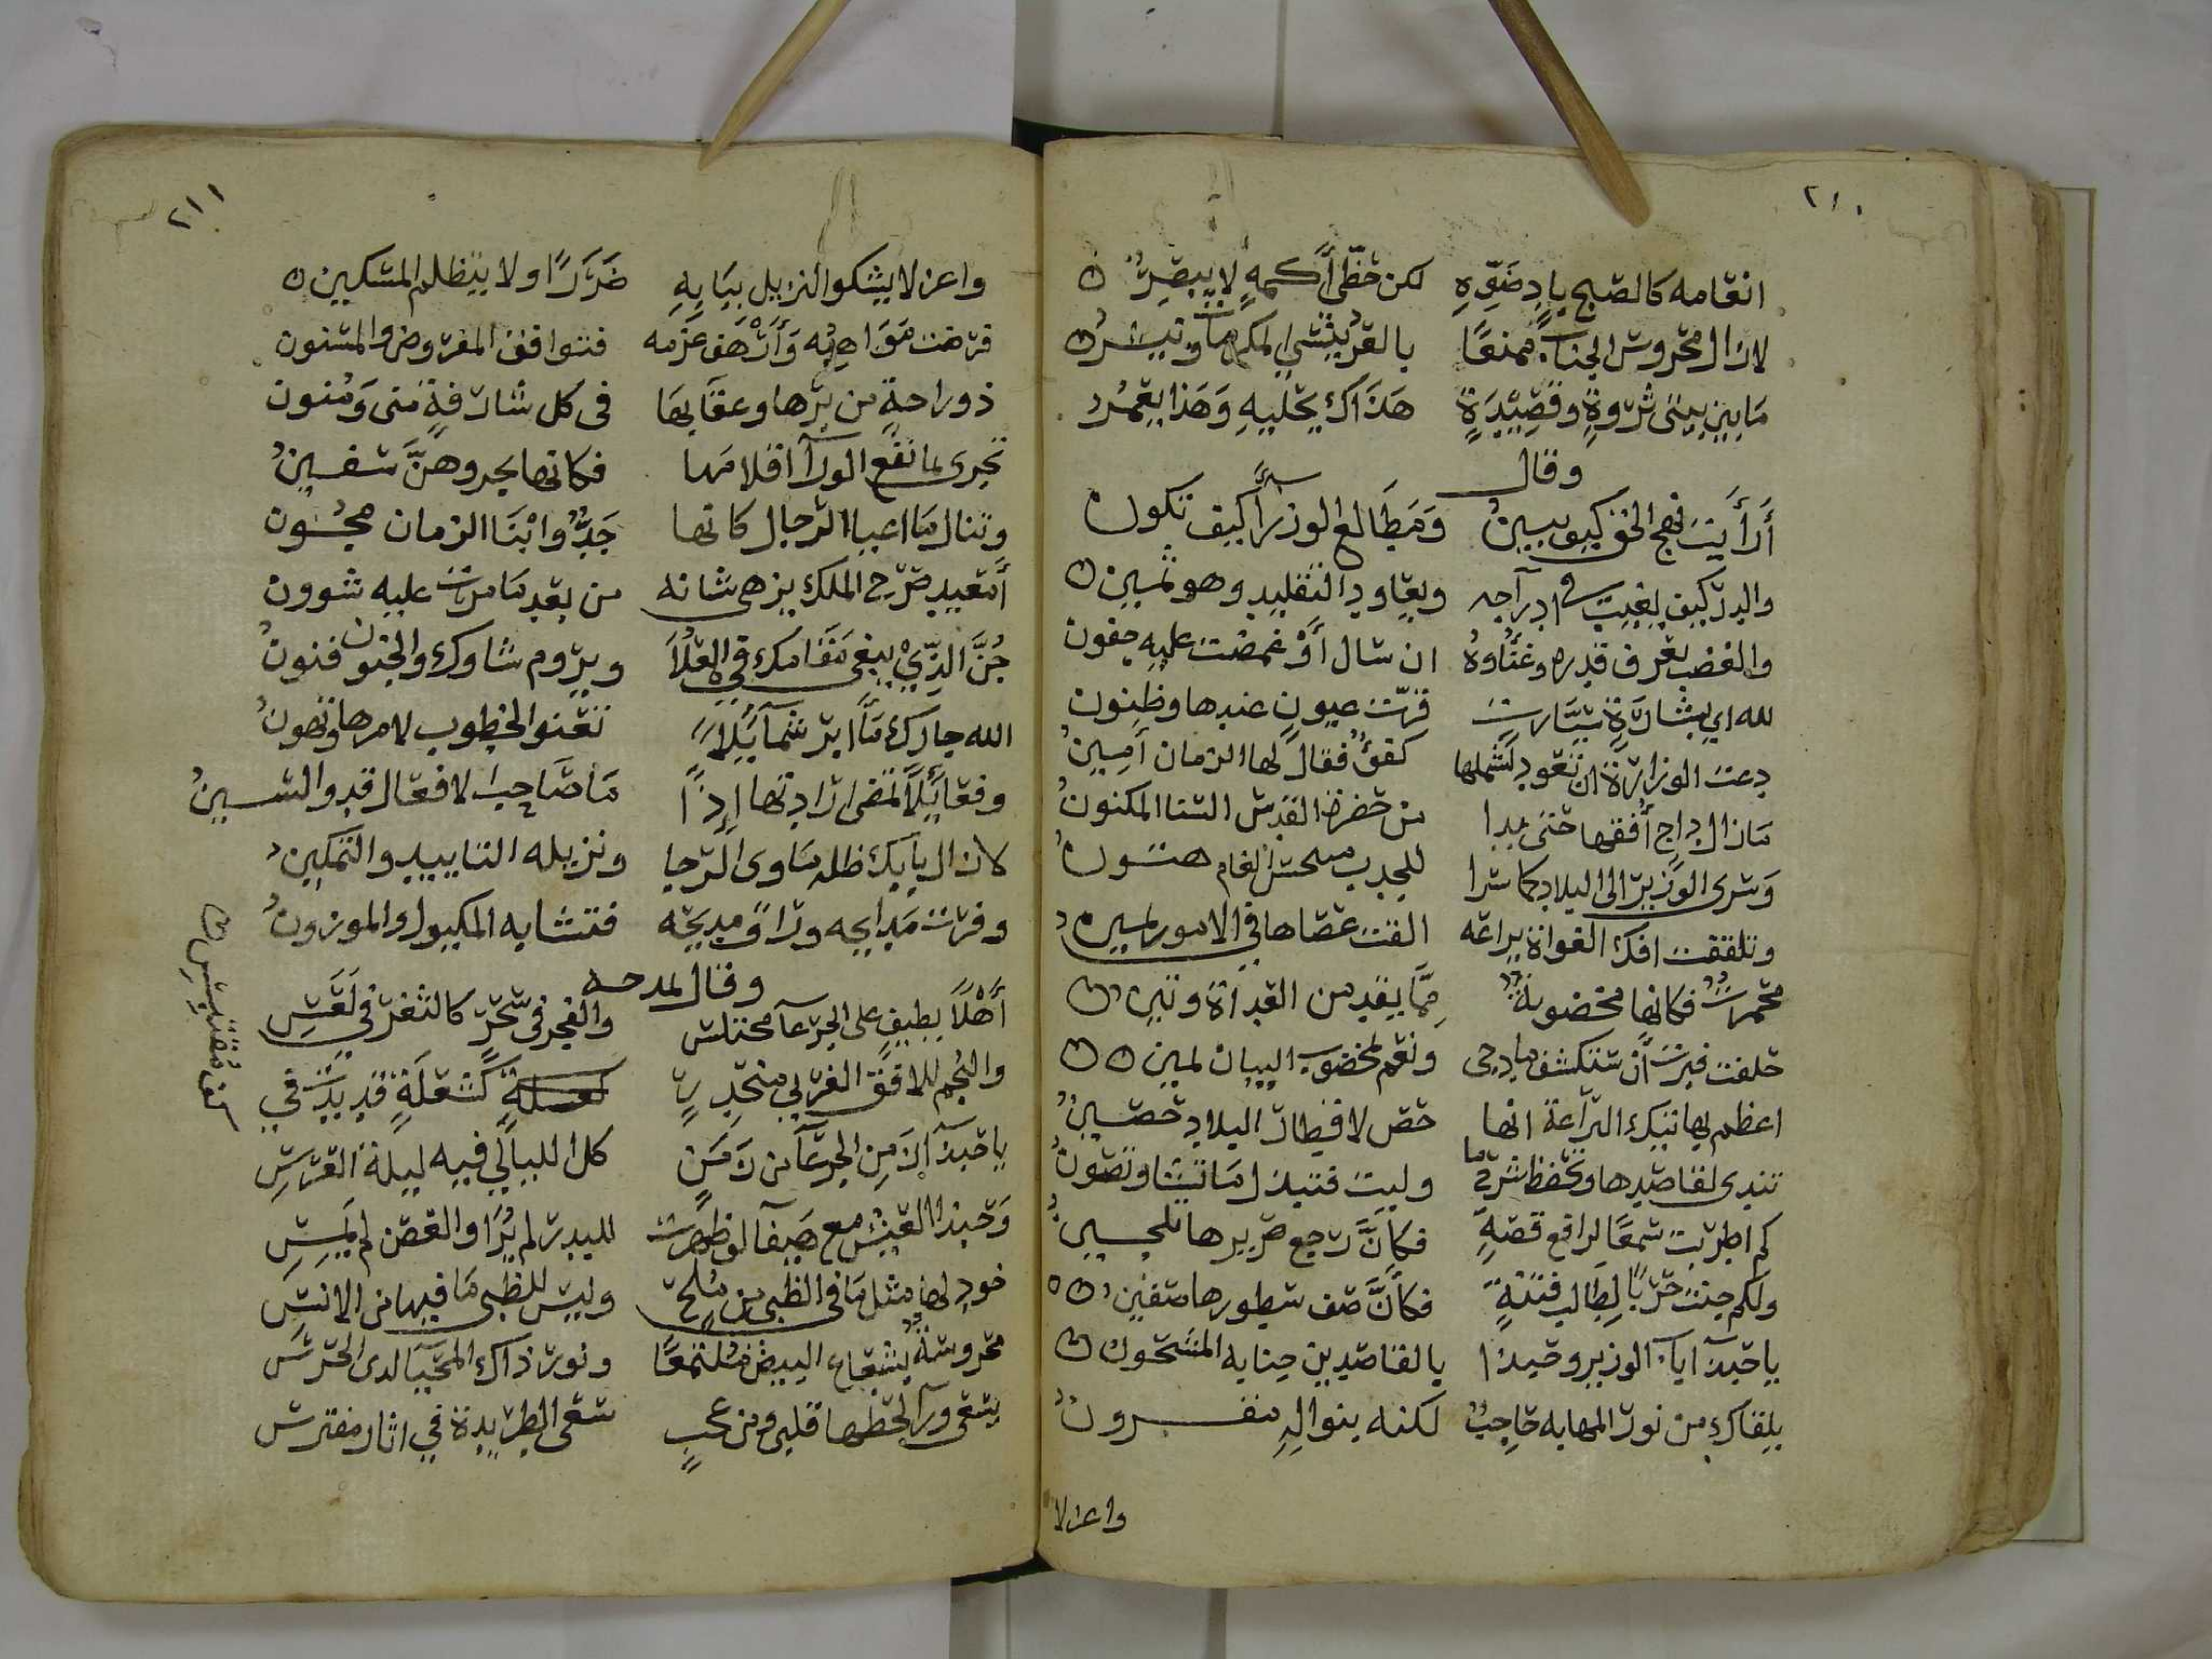 ٢١٠
انعامه كالصبح باد ضوءه لكن حظى أكمه لا يبصر
لا زال محروس الجناب ممنعا بالقرب ينشى المكرمات وينشر
ما بين بيتى ثروة وقصيدة هذاك يخليه وهذا يعمر
وقال
أرأيت نهج الحق كيف يبين ومطالع الوزراء كيف تكون
والبدر كيف يغيب فى ادراجه ويعاود التقليد وهو ثمين
والعضب يعرف قدره وغناوه ان سال أو غمضت عليه جفون
لله اى بشارة سارت قرت عيون عندها وظنون
دعت الوزارة ان تعود لشملها كفؤ فقال لها الزمان أمين
ما زال داج أفقها حتى بدا من حضرة القدس السنا المكنون
وسرى الوزير الى البلاد كما سرا للجدب الغمام هتون
وتلقفت افك الغواة يراعه القت عصاها فى الامور يمين
محمرة فكانها مخضوبة مما يقد من العداة وتبين
حلفت فبرت أن ستكشف ما دجى ونعم لمخضوب البنان يمين
اعظم بها تيك اليراعة انها حصن لاقطار البلاد حصين
تندى لقاصدها وتحفظ سرحها وليت فتبذل ما تشا وتصون
كم اطربت سمعا لرافع قصة فكأن رجع صريرها تلحين
ولكم جنت حربا لطالب فتنة فكأن صف سطورها صفين
يا حبذا باب الوزير وحبذا بالقاصدين جنابه المشحون
يلقاك من نور المهابه حاجب لكنه بنواله مقرون
واعز لا
٢١١
واعز لا يشكو النزيل ببابه ضررا ولا يتظلم المسكين
فرضت مواهبه وأرهف عزمه فتوافق المفروض والمسنون
ذو راحة من برها وعقابها فى كل شارقة منى ومنون
تجرى بما نفع الورا اقلامها فكانها بحر وهن سفين
وتنال ما اعيا الرجال كانها جد وابنا الزمان مجون
أمعيد صرح الملك يزهى شانه من بعد ما مرت عليه شوون
جن الذى يبغى مقامك فى العلا ويروم شاوك والجنون فنون
الله جارك ما ابر شمايلا تعنو الخطوب لامرها وتهون
وفعايلا تقفى ارادتها اذا ما صاحب الافعال قد والسين
لا زال بابك ظله ماوى الرجا ونزيله التاييد والتمكين
وفرت مدايحه وراق مديحه فتشابه المكيول والموزون
وقال يمدحه
أهلا بطيف على الجرعا مختلس والفجر فى سحر كالثغر فى لعس
والنجم للافق الغربى منحدر كشعلة قد بدت فى
كف مقتبس
يا حبذا لك من الجرعا من زمن كل الليالى فيه ليلة العرس
وحبذا العيش مع هيفا لو ظهرت للبدر لم يزا والغصن لم يمس
خود لها مثل ما فى الظبى من ملح وليس للظبى ما فيها من الانس
محروسة بشعاع البيض ملتمعا ونور ذاك المحيا لدى الحرس
يسعى ورا لحظها قلبى ومن عجب سعى الطريدة فى اثار مفترس